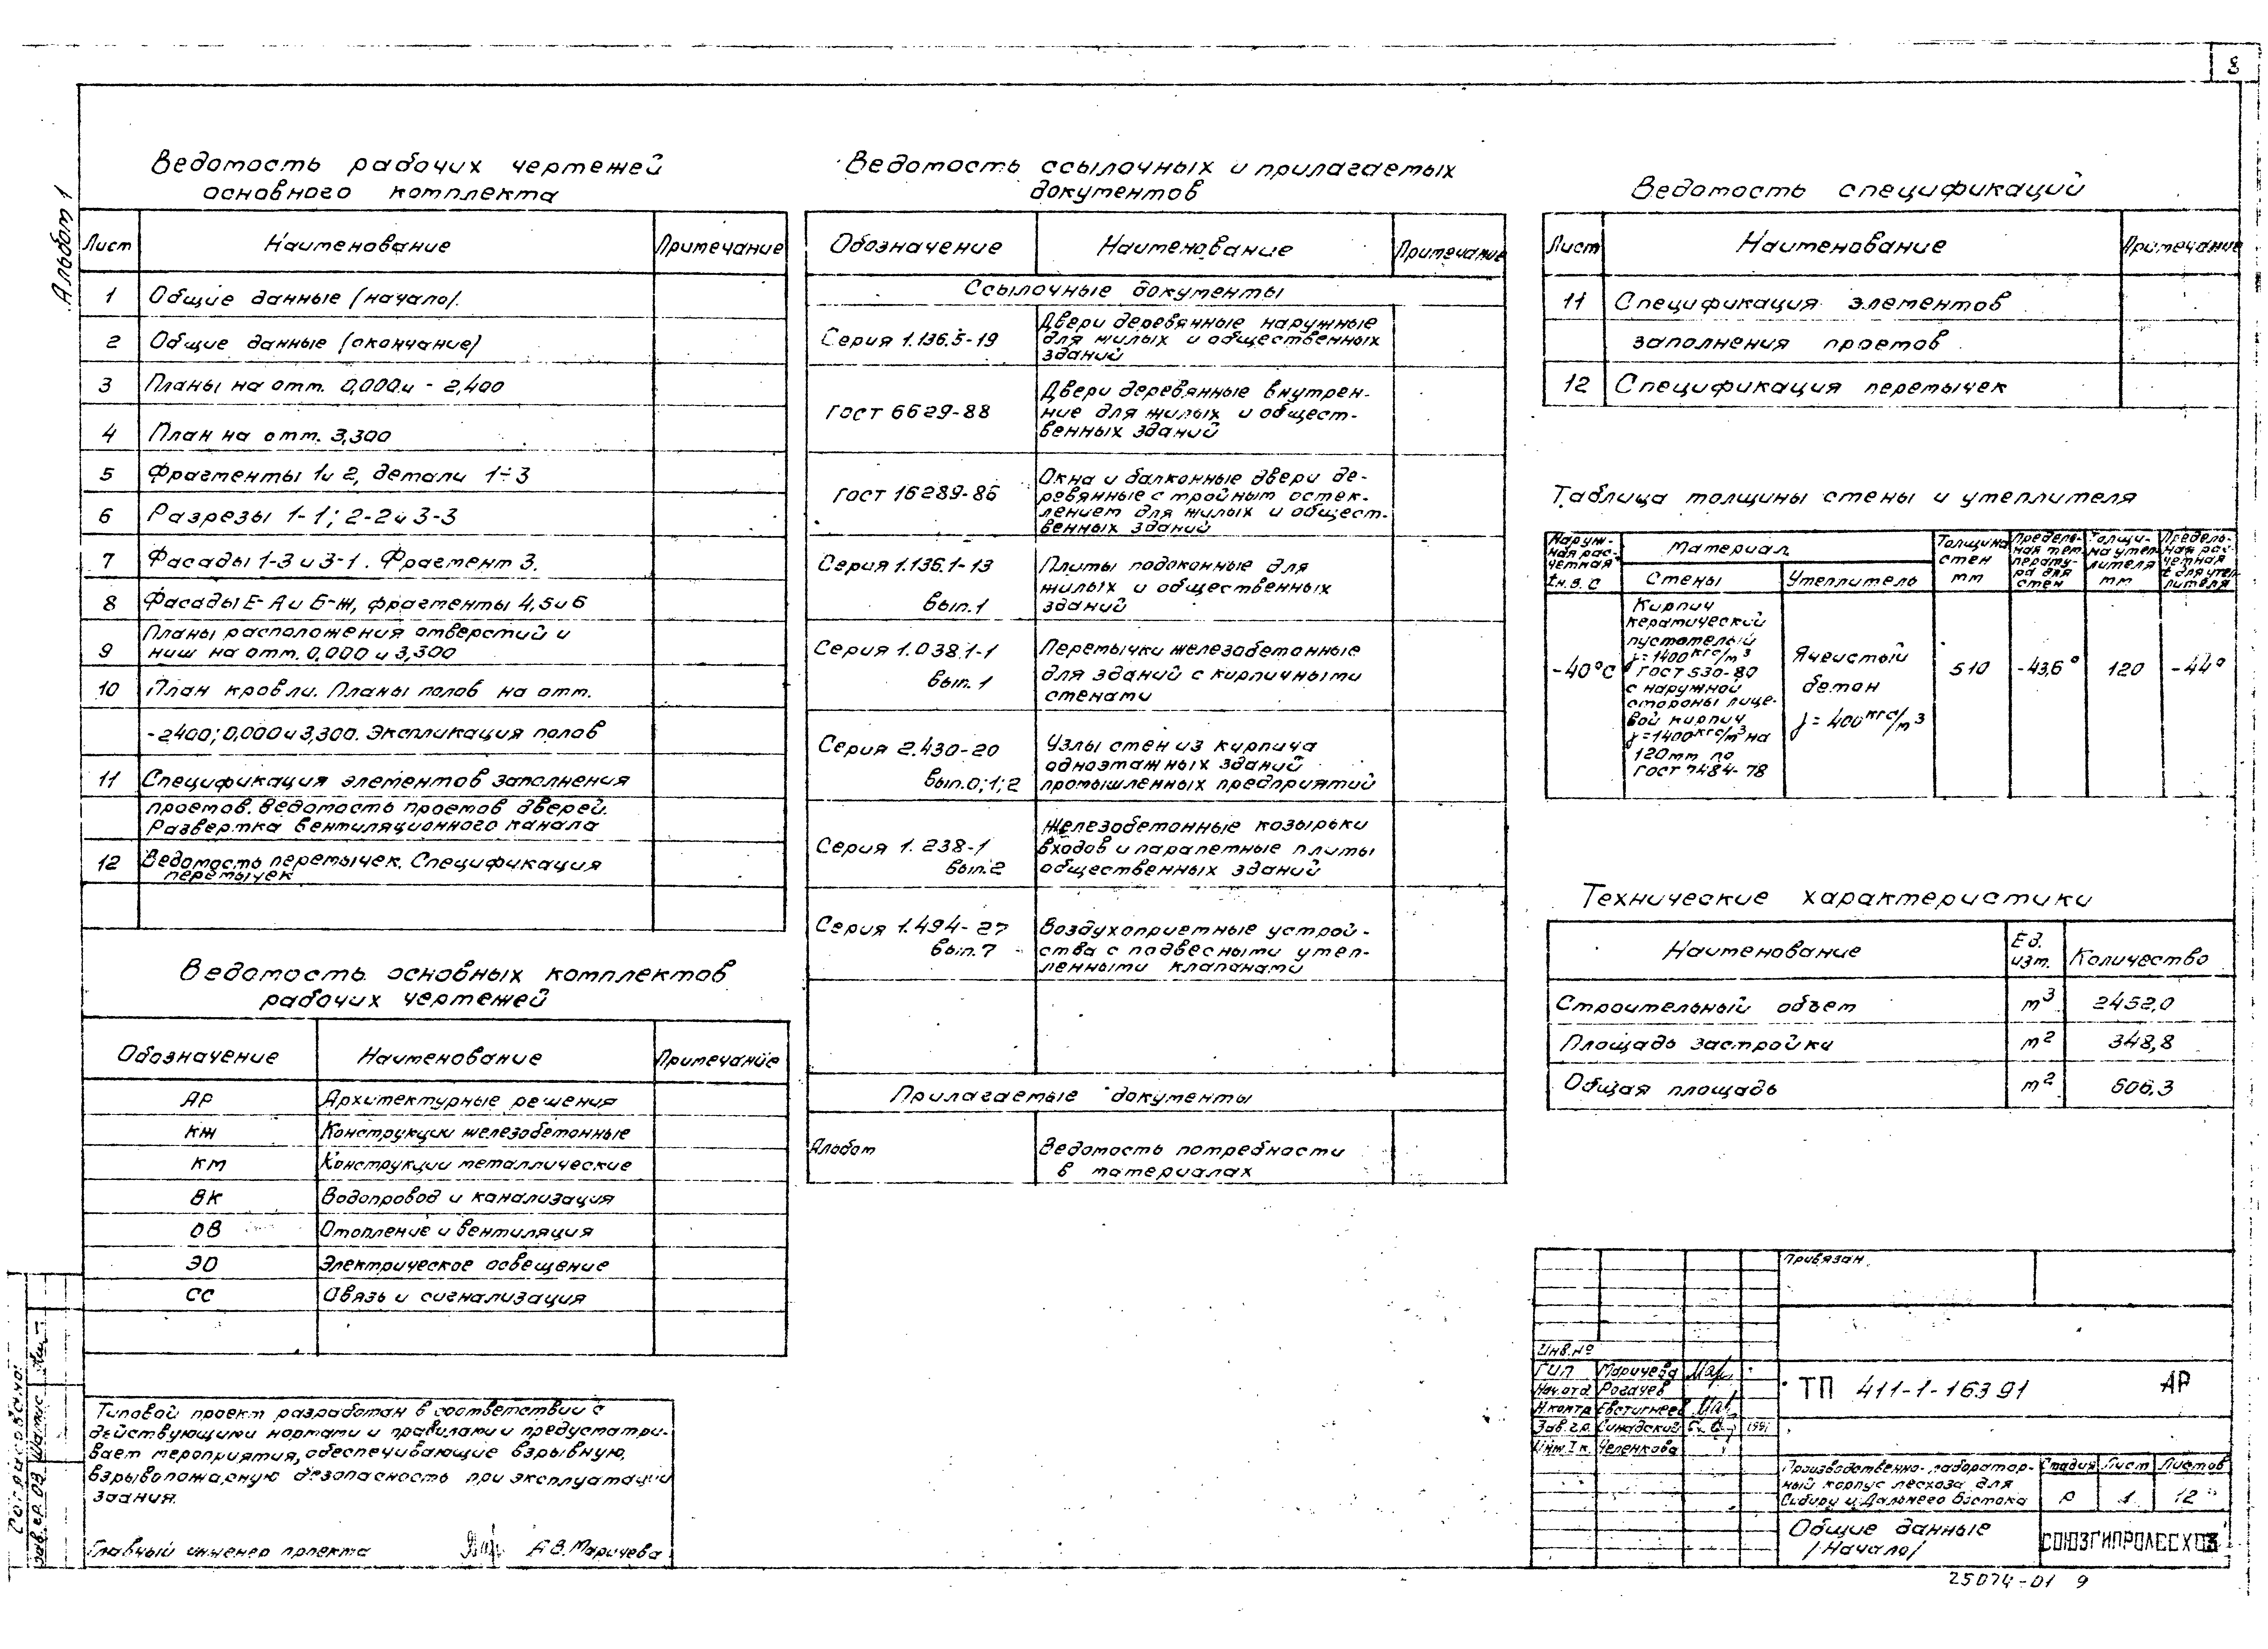 8
Альбом 1
Ведомость рабочих чертежей
основного комплекта
Лист Наименование Примечание
1 Общие данные (начало).
2 Общие данные (окончание)
3 Планы на отм. 0,000 и - 2,400
4 План на отм. 3,300
5 Фрагменты 1 и 2, детали 1÷3
6 Разрезы 1-1; 2-2 и 3-3
7 Фасады 1-3 и 3-1. Фрагмент 3.
8 Фасады Е-А и Б-Ж, фрагменты 4, 5 и 6
Планы расположения отверстий и
9 ниш на отм. 0,000 и 3,300
10 План кровли. Планы полов на отм.
-2400; 0,000 и 3,300. Экспликация полов
11 Спецификация элементов заполнения
проемов. Ведомость проемов дверей.
Развертка вентиляционного канала
12 Ведомость перемычек. Спецификация
перемычек
Ведомость основных комплектов
рабочих чертежей
Обозначение Наименование Примечание
АР Архитектурные решения
КЖ Конструкции железобетонные
КМ Конструкции металлические
ВК Водопровод и канализация
ОВ Отопление и вентиляция
ЭО Электрическое освещение
СС Связь и сигнализация
Типовой проект разработан в соответствии с
действующими нормами и правилами и предусматри-
вает мероприятия, обеспечивающие взрывную,
взрывопожарную безопасность при эксплуатации
здания.
Главный инженер проекта А.В. Маричева
Ведомость ссылочных и прилагаемых
документов
Обозначение Наименование Примечание
Ссылочные документы
Серия 1.136.5-19 Двери деревянные наружные
для жилых и общественных
зданий
ГОСТ 6629-88 Двери деревянные внутрен-
ние для жилых и общест-
венных зданий
ГОСТ 16289-86 Окна и балконные двери де-
ревянные с тройным остек-
лением для жилых и общест-
венных зданий
Серия 1.136.1-13 Плиты подоконные для
жилых и общественных
вып.1 зданий
Серия 1.038.1-1 Перемычки железобетонные
вып. 1 для зданий с кирпичными
стенами
Серия 2.430-20 Узлы стен из кирпича
одноэтажных зданий
вып.0;1;2 промышленных предприятий
Железобетонные козырьки
Серия 1.238-1 входов и парапетные плиты
вып.2 общественных зданий
Серия 1.494-27 Воздухоприемные устрой-
вып.7 ства с подвесными утеп-
ленными клапанами
Прилагаемые документы
Альбом Ведомость потребности
в материалах
Ведомость спецификаций
Лист Наименование Примечание
11 Спецификация элементов
заполнения проемов
12 Спецификация перемычек
Таблица толщины стены и утеплителя
Наруж-
ная рас-
четная
tн.в. С
Материал
Стены Утеплитель
Толщина
стен
мм
Предель-
ная тем
перату-
ра для
стен
Толщи-
на утеп
лителя
мм
Предель-
ная рас-
четная
t для утеп
лителя
-40°С
Кирпич
керамический
пустотелый
γ=1400кгс/м³
ГОСТ 530-80
с наружной
стороны лице-
вой кирпич
γ=1400кгс/м³ на
120мм по
ГОСТ 7484-78
Ячеистый
бетон
γ=400кгс/м³
510 -43,6° 120 -44°
Технические характеристики
Наименование Ед. изм. Количество
Строительный объем м³ 2452,0
Площадь застройки м² 348,8
Общая площадь м² 606,3
Привязан
Инв.№
ГИП Маричева
Нач.отд Рогачев
Н.контр Евстигнеев
Зав.гр. Синадский 1991
Инж.I к. Челенкова
ТП 411-1-163 91 АР
Производственно-лаборатор-
ный корпус лесхоза для
Сибири и Дальнего Востока
Стадия Лист Листов
Р 1 12
Общие данные
/Начало/
СОЮЗГИПРОЛЕСХОЗ
25074-01 9
Согласовано:
Зав.гр. ОВ